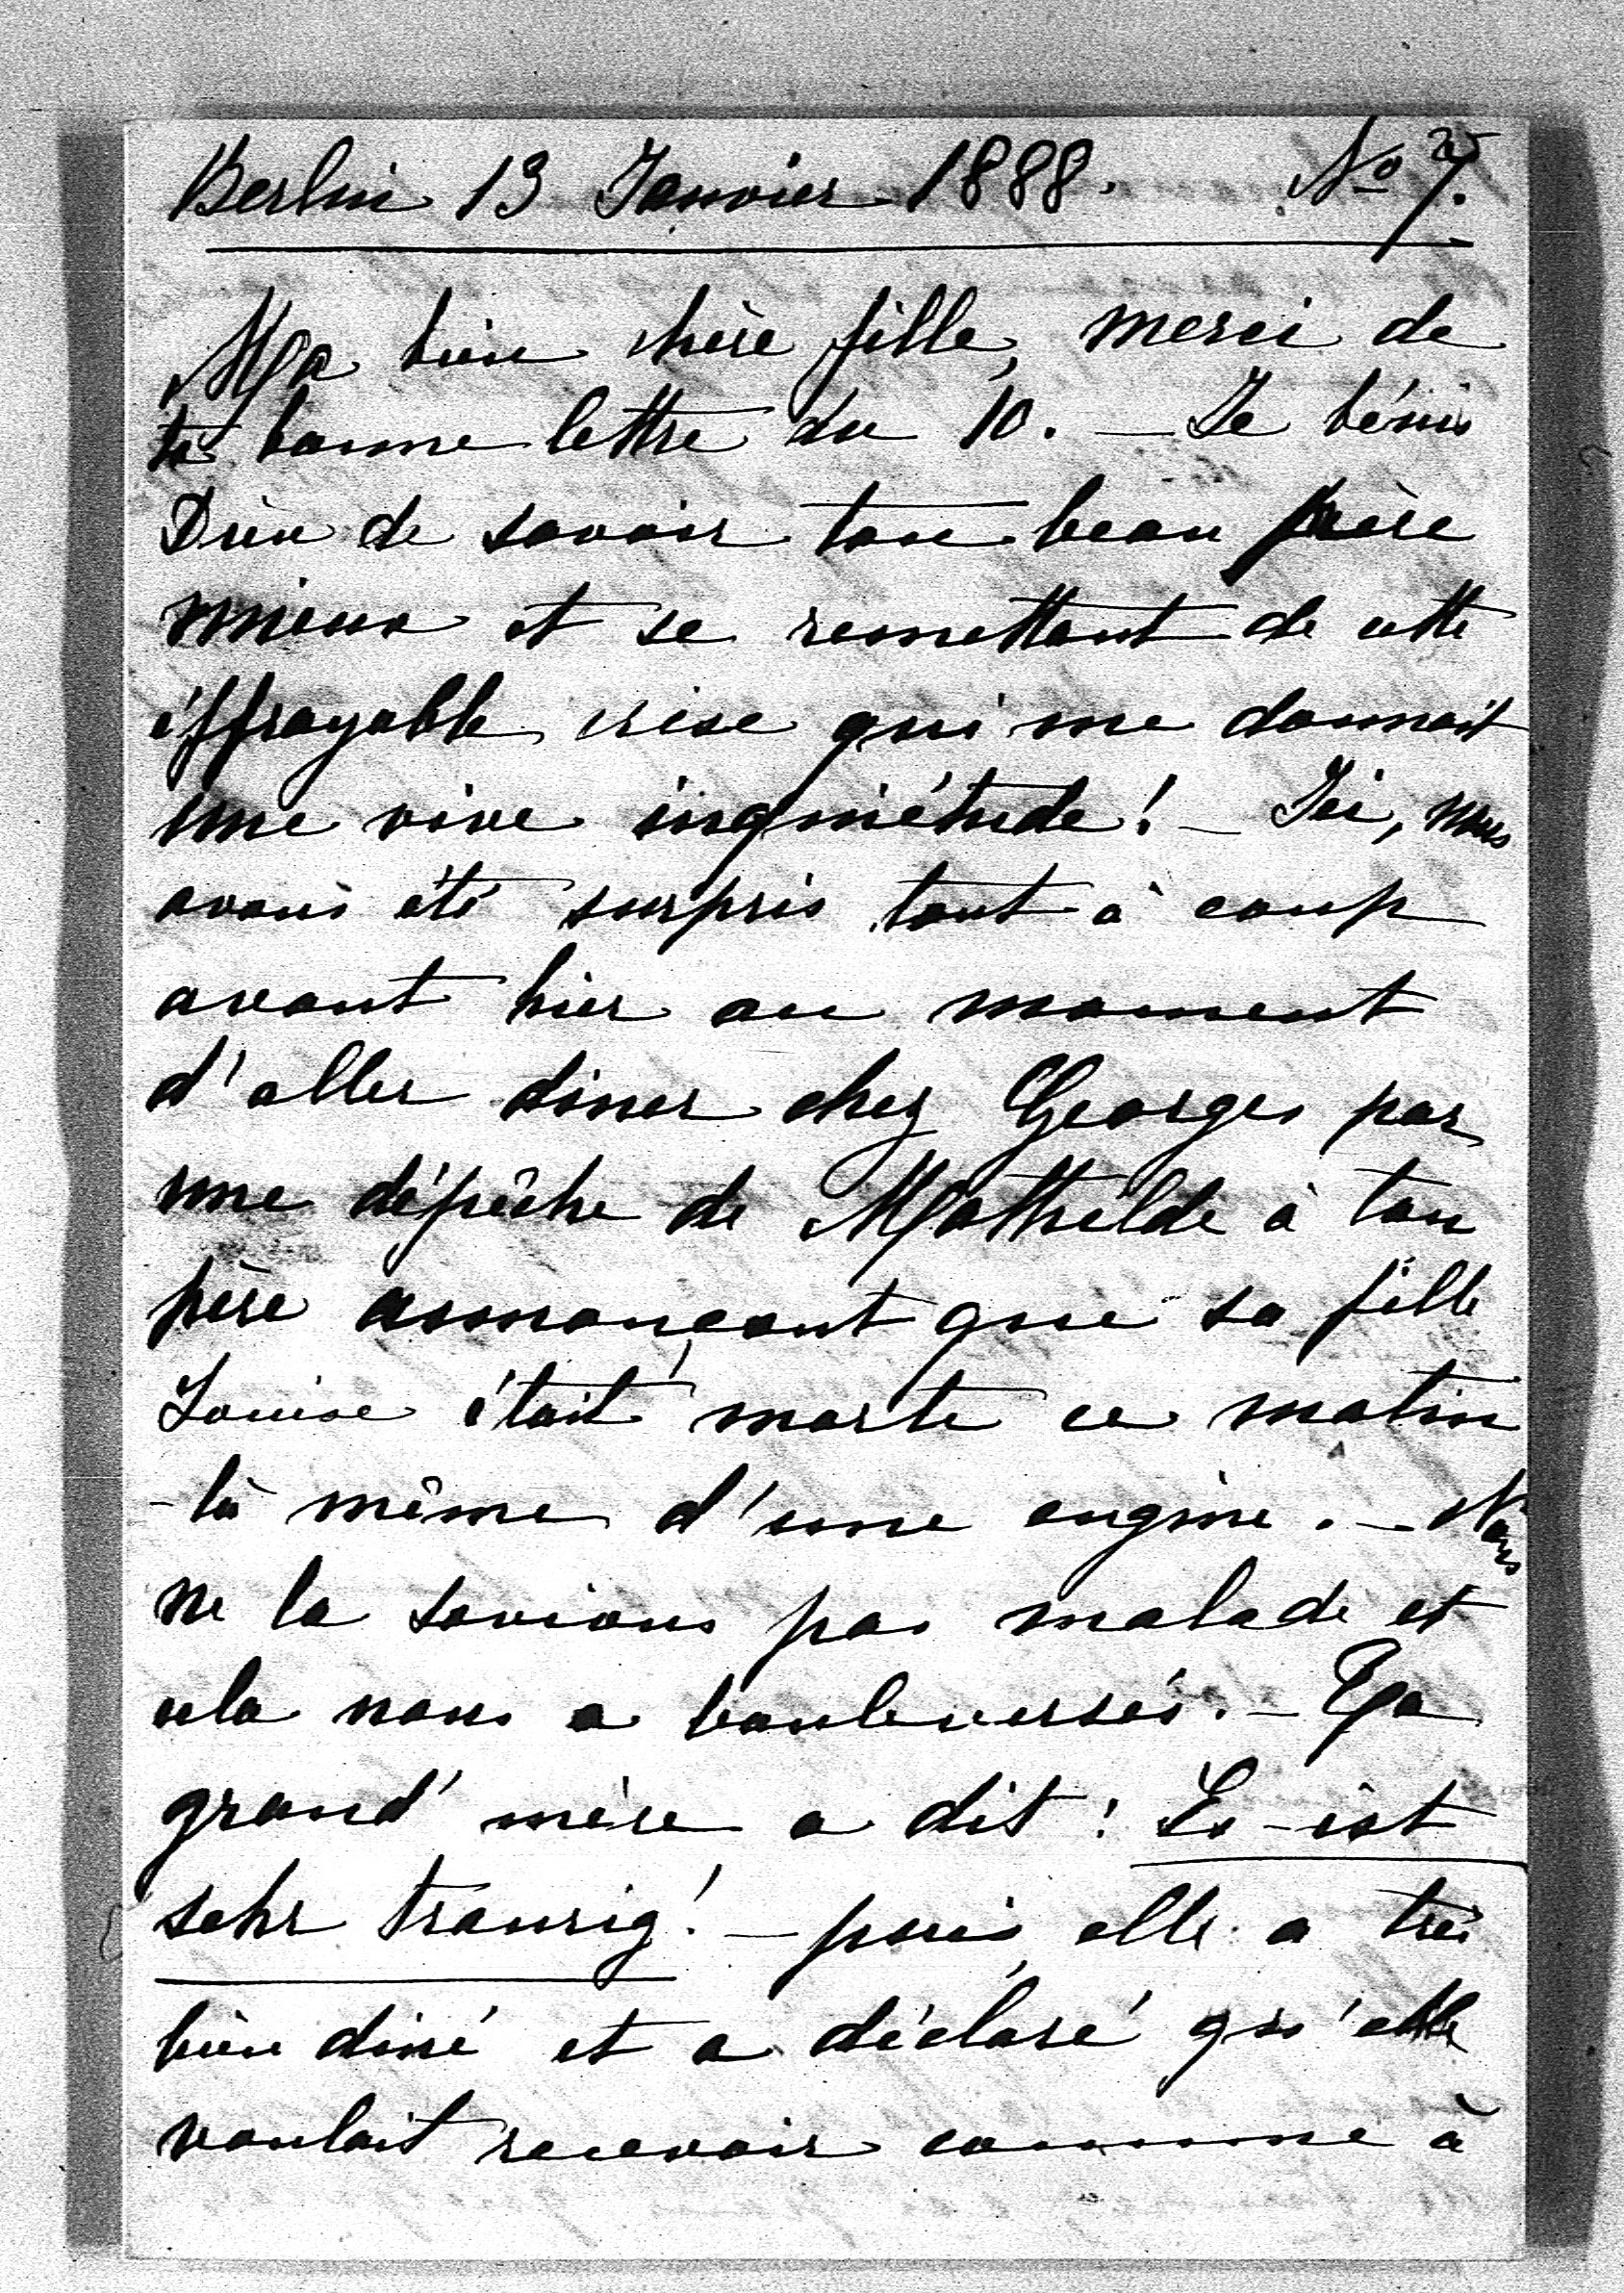 Berlin 13 Janvier 1888. No 7.
Ma bien chère fille, merci de
ta bonne lettre du 10. — Je bénis
Dieu de savoir ton beau père
mieux et se remettant de cette
éffroyable crise qui me donnait
une vive inquiétude! — Ici, nous
avons été surpris tout à coup
avant hier au moment
d'aller diner chez Georges par
une dépêche de Mathilde à ton
père annonçant que sa fille
Louise était morte ce matin
-là même d'une angine. — Nous
ne la savions pas malade et
cela nous a bouleversés. — Ta
grand'mère a dit: Es ist
sehr traurig! — puis elle a très
bien diné et a déclaré qu'elle
voulait recevoir comme à